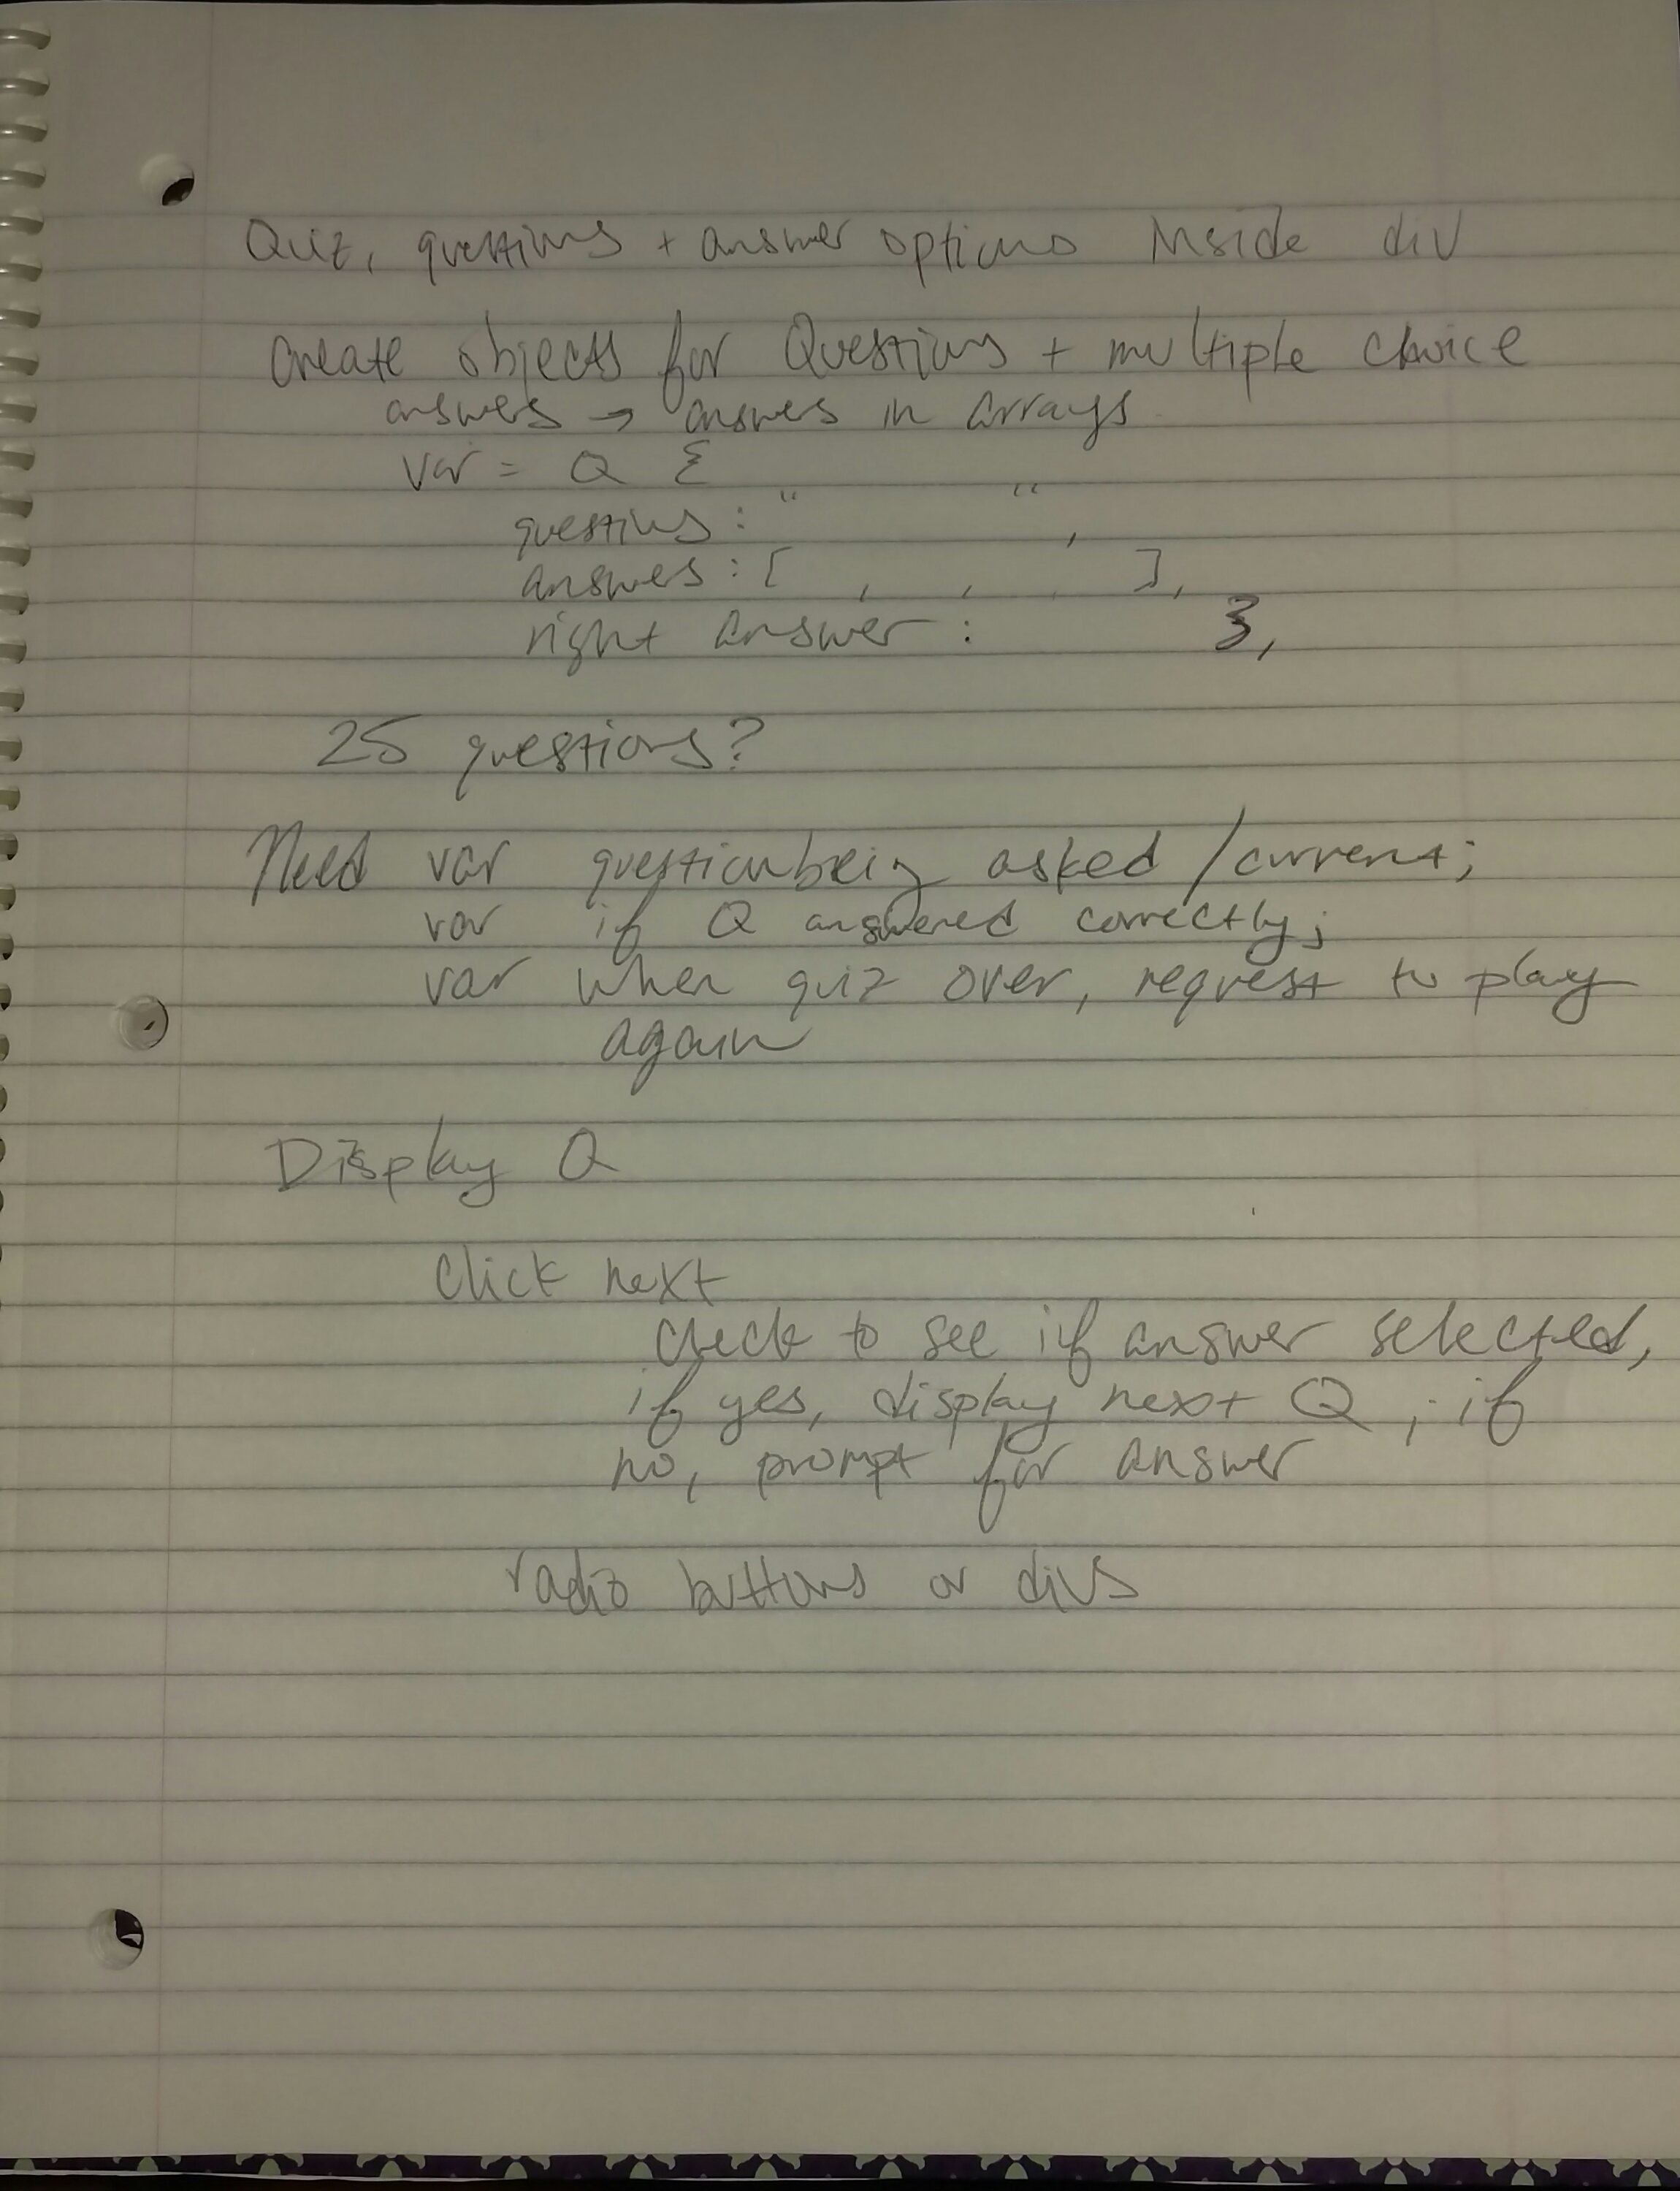 Quiz, questions + answer options inside div
Create objects for Questions + multiple choice
answers → answers in arrays
var = Q {
questions: " ",
answers: [ , , , ],
right answer : },
25 questions?
Need var question being asked / current;
var if Q answered correctly;
var when quiz over, request to play
again
Display Q
Click next
check to see if answer selected,
if yes, display next Q ; if
no, prompt for answer
radio buttons or divs